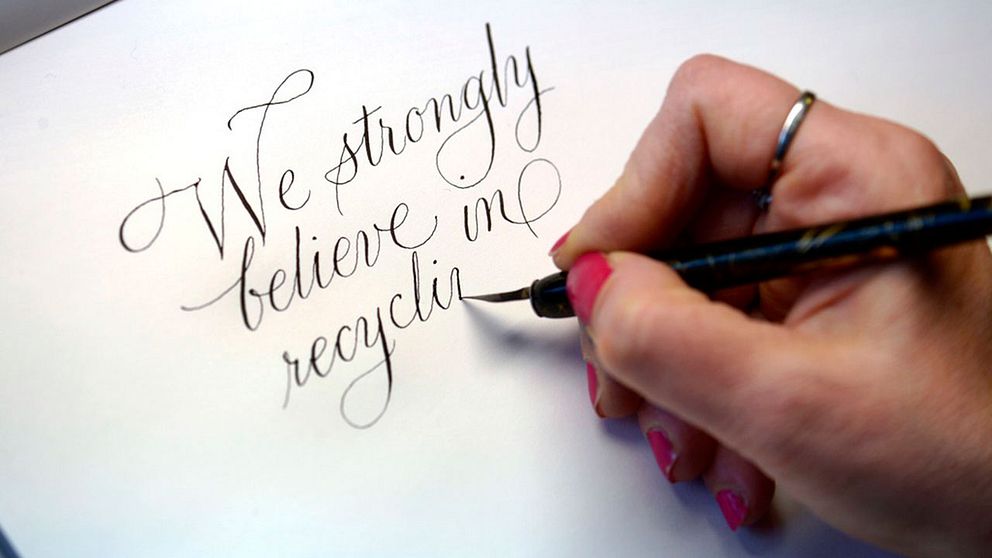 We strongly
believe in
recyclin